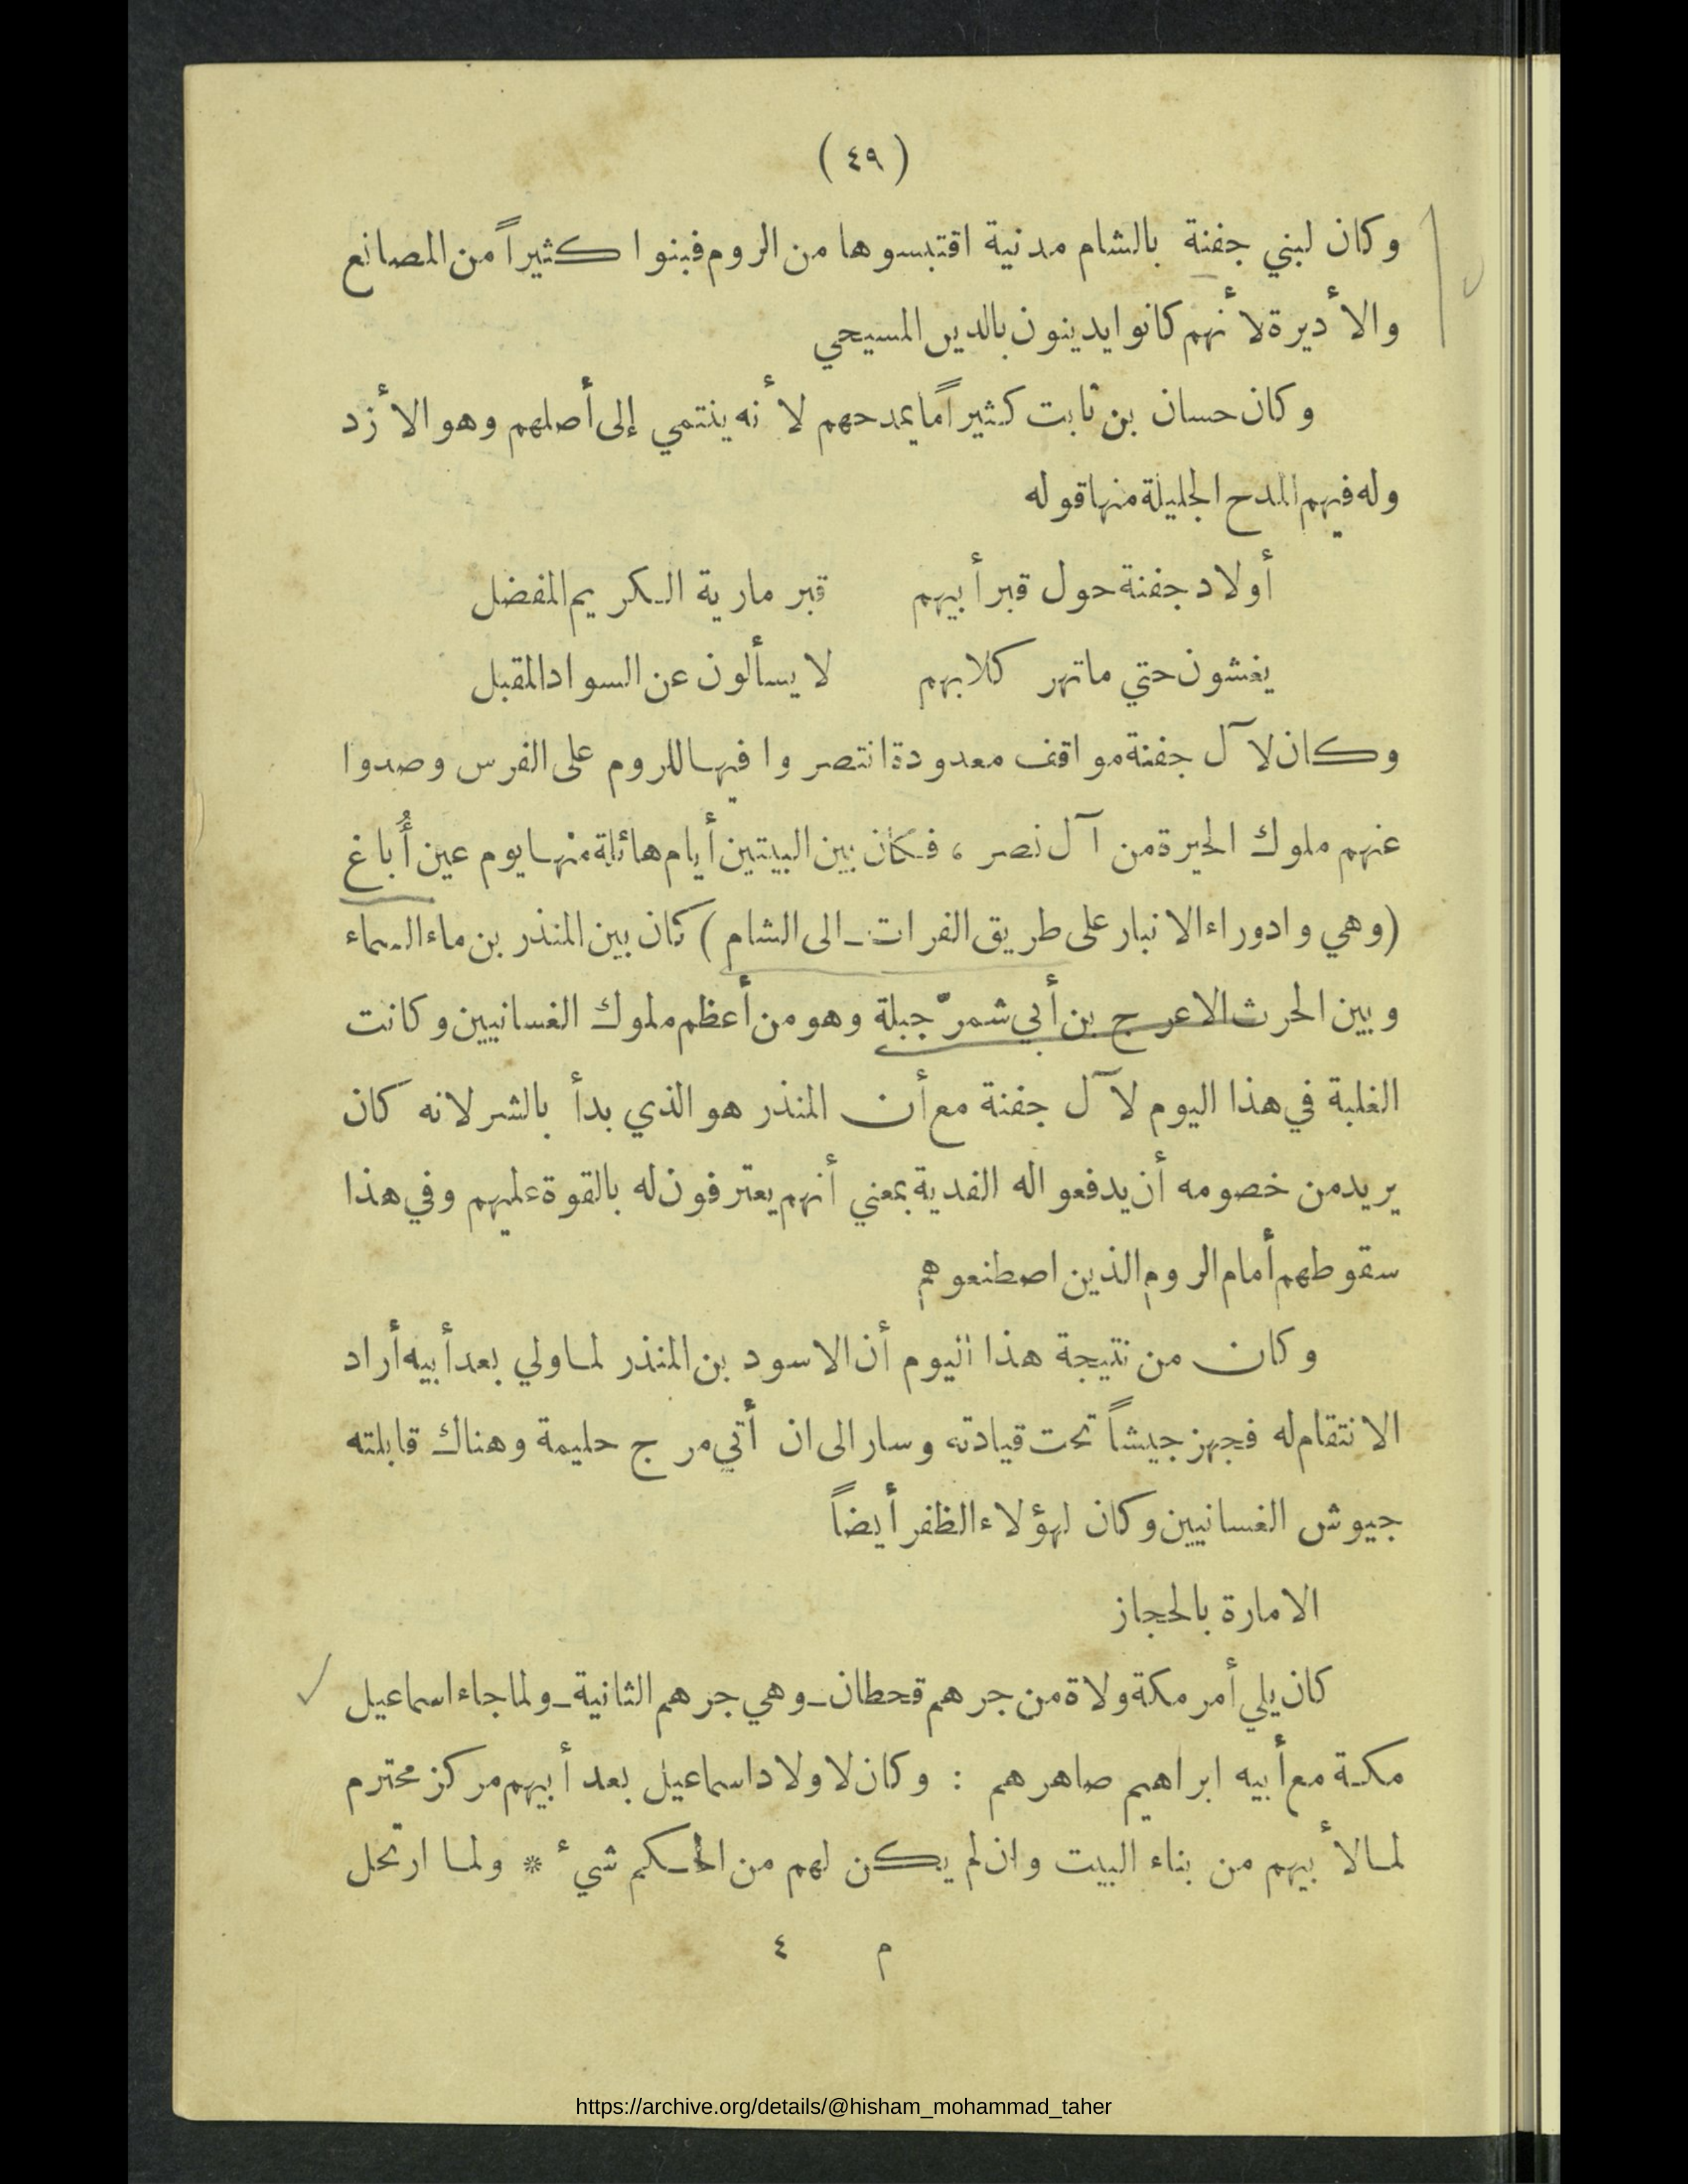 ( ٤٩ )
وكان لبني جفنة بالشام مدنية اقتبسوها من الروم فبنوا كثيراً من المصانع
والأديرة لأنهم كانوا يدينون بالدين المسيحي
وكان حسان بن ثابت كثيراً ما يمدحهم لأنه ينتمي إلى أصلهم وهو الأزد
وله فيهم المدح الجليلة منها قوله
أولاد جفنة حول قبر أبيهم قبر مارية الكريم المفضل
يغشون حتي ما تهر كلابهم لا يسألون عن السواد المقبل
وكان لآل جفنة مواقف معدودة انتصروا فيها للروم على الفرس وصدوا
عنهم ملوك الحيرة من آل نصر ، فكان بين البيتين أيام هائلة منها يوم عين أُباغ
(وهي واد وراء الانبار على طريق الفرات ـ الى الشام) كان بين المنذر بن ماء السماء
وبين الحرث الاعرج بن أبي شمرّ جبلة وهو من أعظم ملوك الغسانيين وكانت
الغلبة في هذا اليوم لآل جفنة مع أن المنذر هو الذي بدأ بالشر لانه كان
يريد من خصومه أن يدفعوا له الفدية بمعني أنهم يعترفون له بالقوة عليهم وفي هذا
سقوطهم أمام الروم الذين اصطنعوهم
وكان من نتيجة هذا اليوم أن الاسود بن المنذر لما ولي بعد أبيه أراد
الانتقام له فجهز جيشاً تحت قيادته وسار الى ان أتي مرج حليمة وهناك قابلته
جيوش الغسانيين وكان لهؤلاء الظفر أيضاً
الامارة بالحجاز
كان يلي أمر مكة ولاة من جرهم قحطان ـ وهي جرهم الثانية ـ ولما جاء اسماعيل
مكة مع أبيه ابراهيم صاهرهم : وكان لاولاد اسماعيل بعد أبيهم مركز محترم
لما لأبيهم من بناء البيت وان لم يكن لهم من الحكم شيء * ولما ارتحل
م ٤
https://archive.org/details/@hisham_mohammad_taher